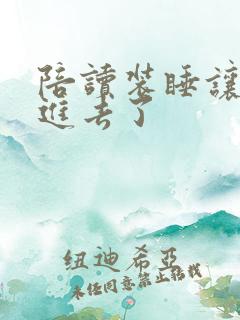 陪讀裝睡讓
進去了
纽迪希亞
未任同意禁止轉載